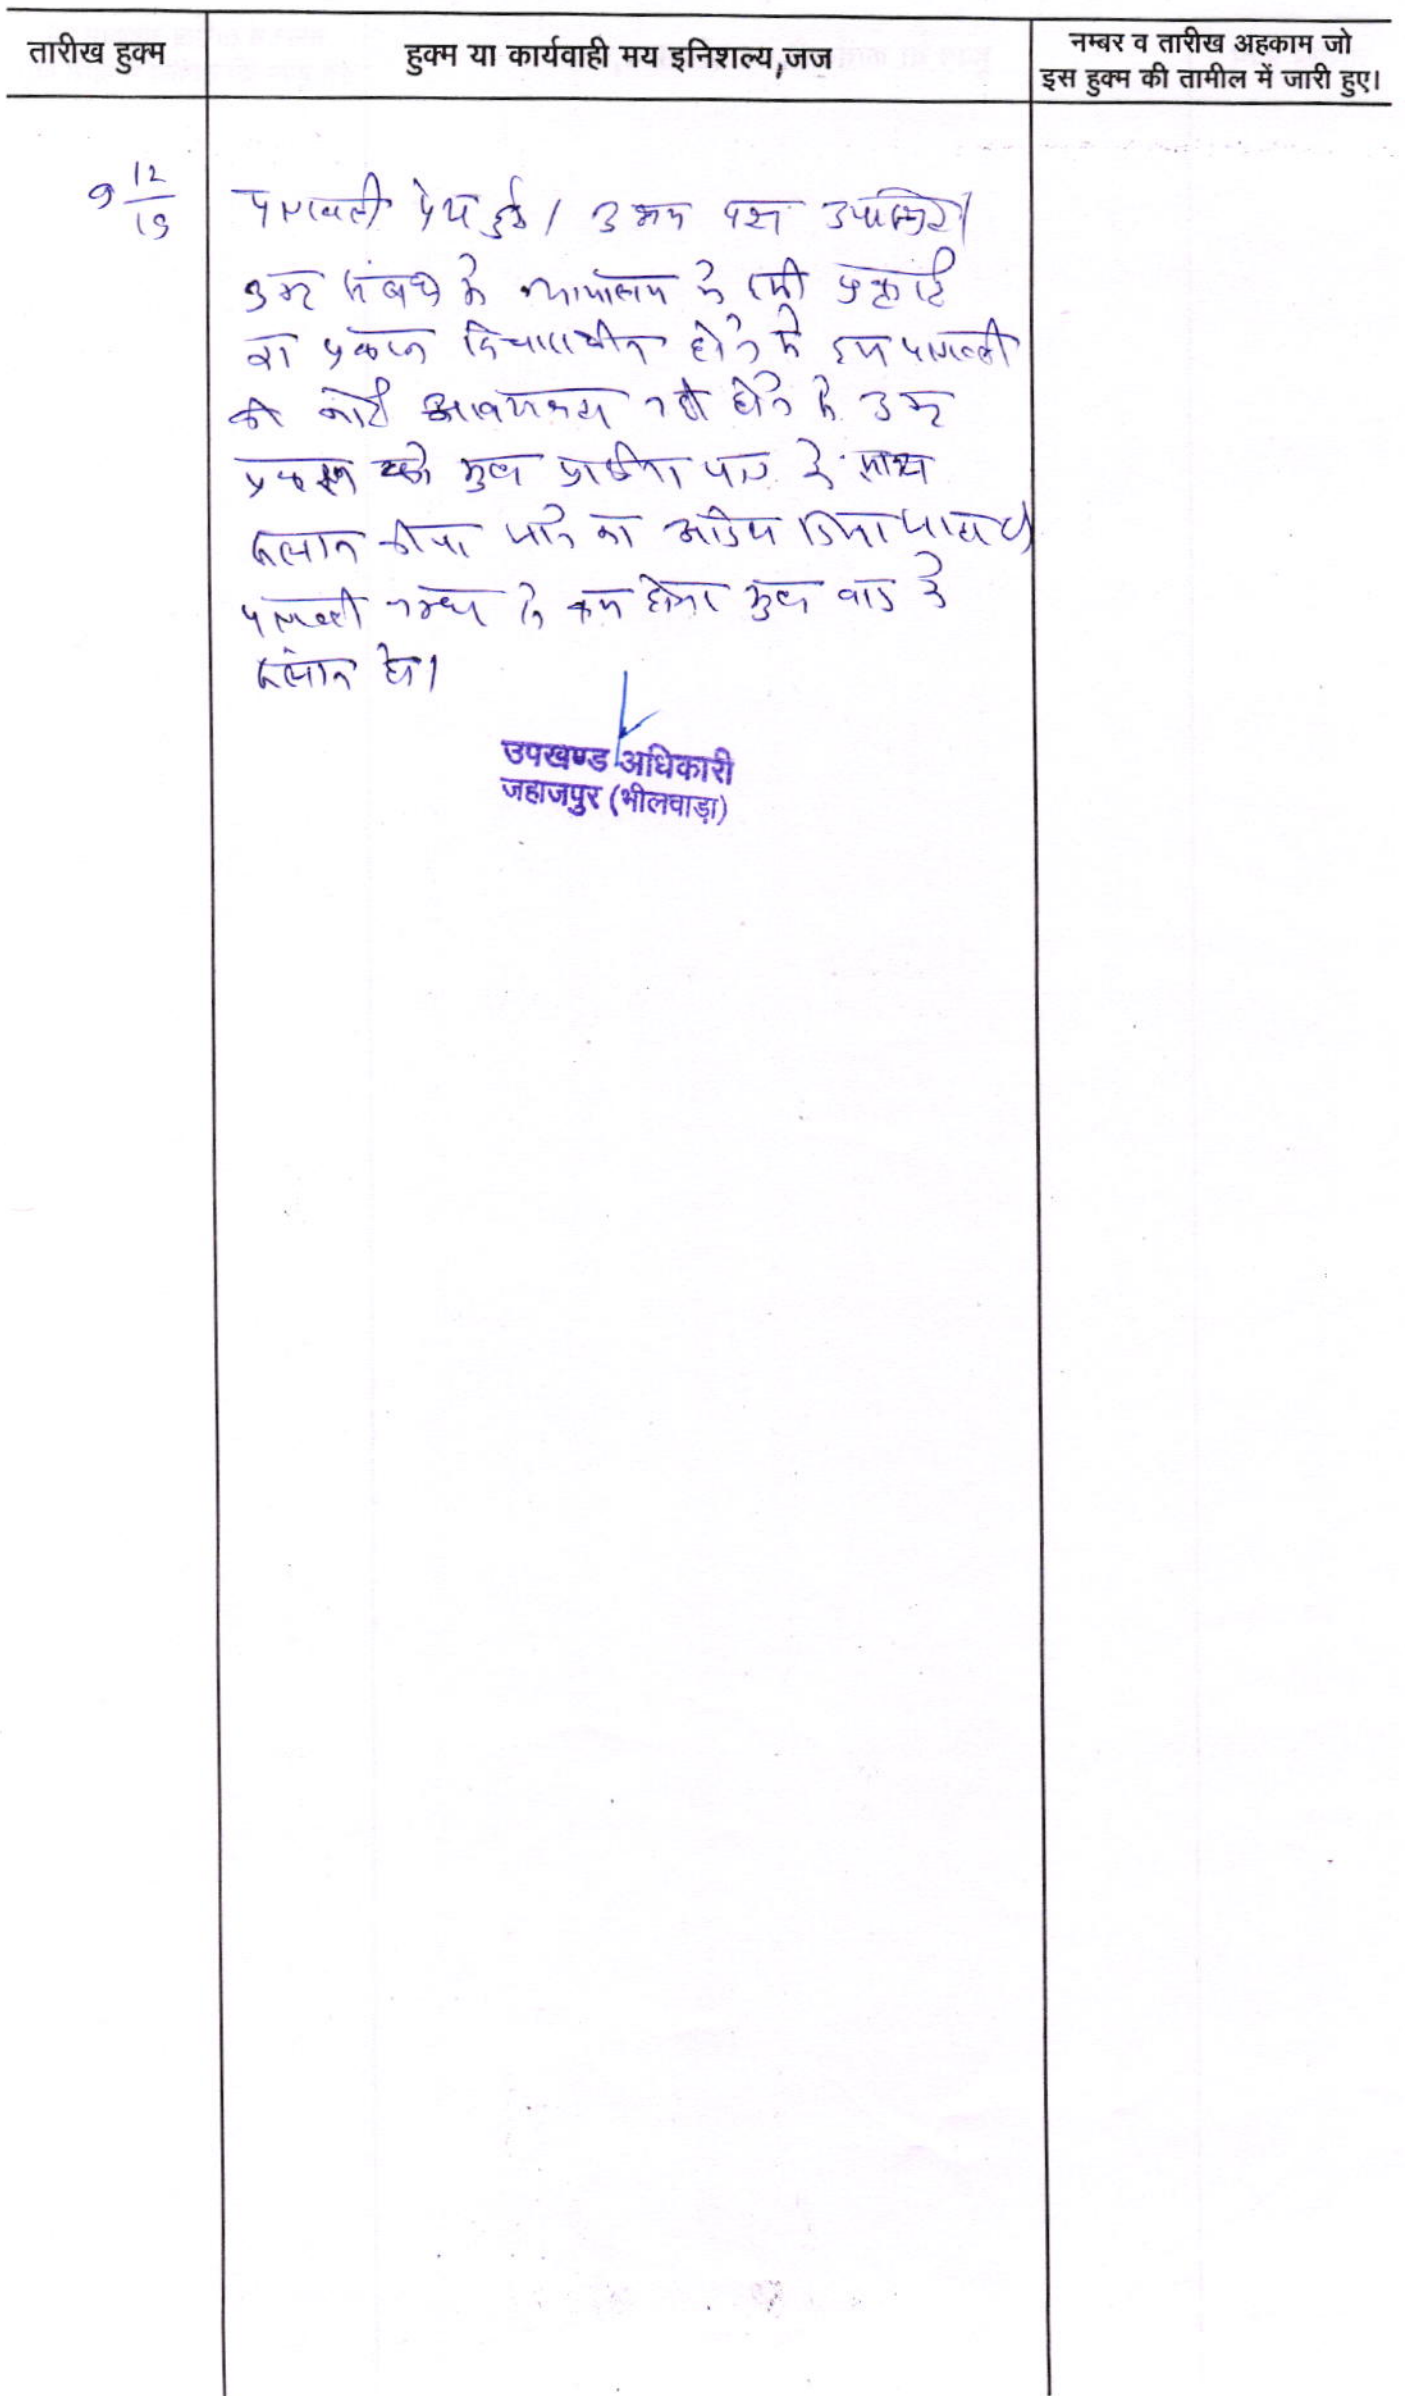 तारीख हुक्म
हुक्म या कार्यवाही मय इनिशल्य,जज
नम्बर व तारीख अहकाम जो
इस हुक्म की तामील में जारी हुए।
9 12/19
पत्रावली पेश हुई। उभय पक्ष उपस्थित।
उक्त संबंध में न्यायालय में इसी प्रकृति
का प्रकरण विचाराधीन होने से इस पत्रावली
की कोई आवश्यकता नही होने से उक्त
प्रकरण को मुल प्रार्थना पत्र के साथ
संलग्न किया जाने का आदेश दिया जाता है
पत्रावली नम्बर से कम होकर मुल वाद में
संलग्न हो।
उपखण्ड अधिकारी
जहाजपुर (भीलवाड़ा)